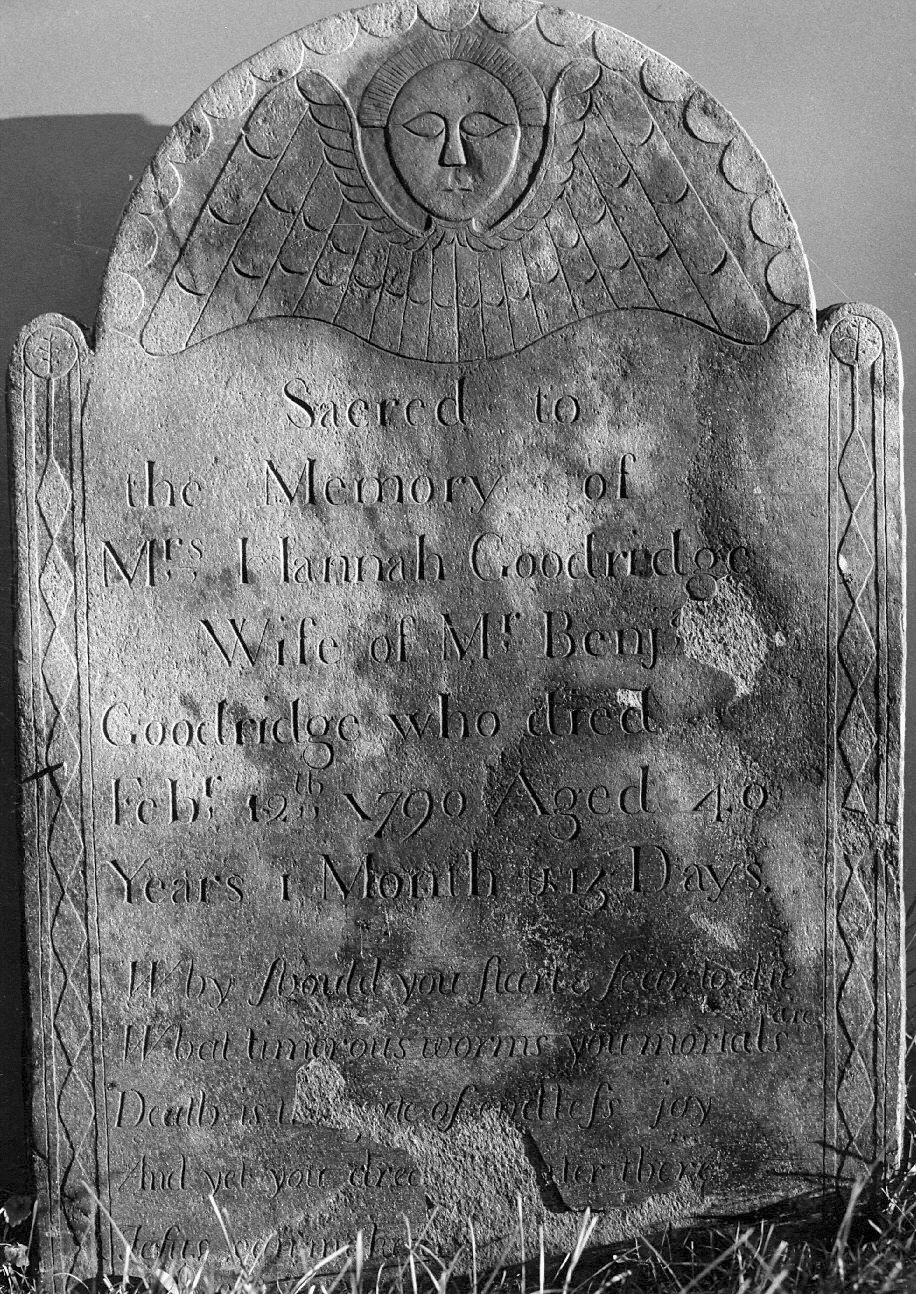 Sacred to
the Memory of
Mrs Hannah Goodridge
Wife of Mr Benj
Goodridge who died
Febr 12th 1790 Aged 40
Years 1 Month & 13 Days.
Why ſhould you ſtart & fear to die
What timorous worms you mortals are
Death is the gate of endleſs joy
And yet you there
Jeſus can